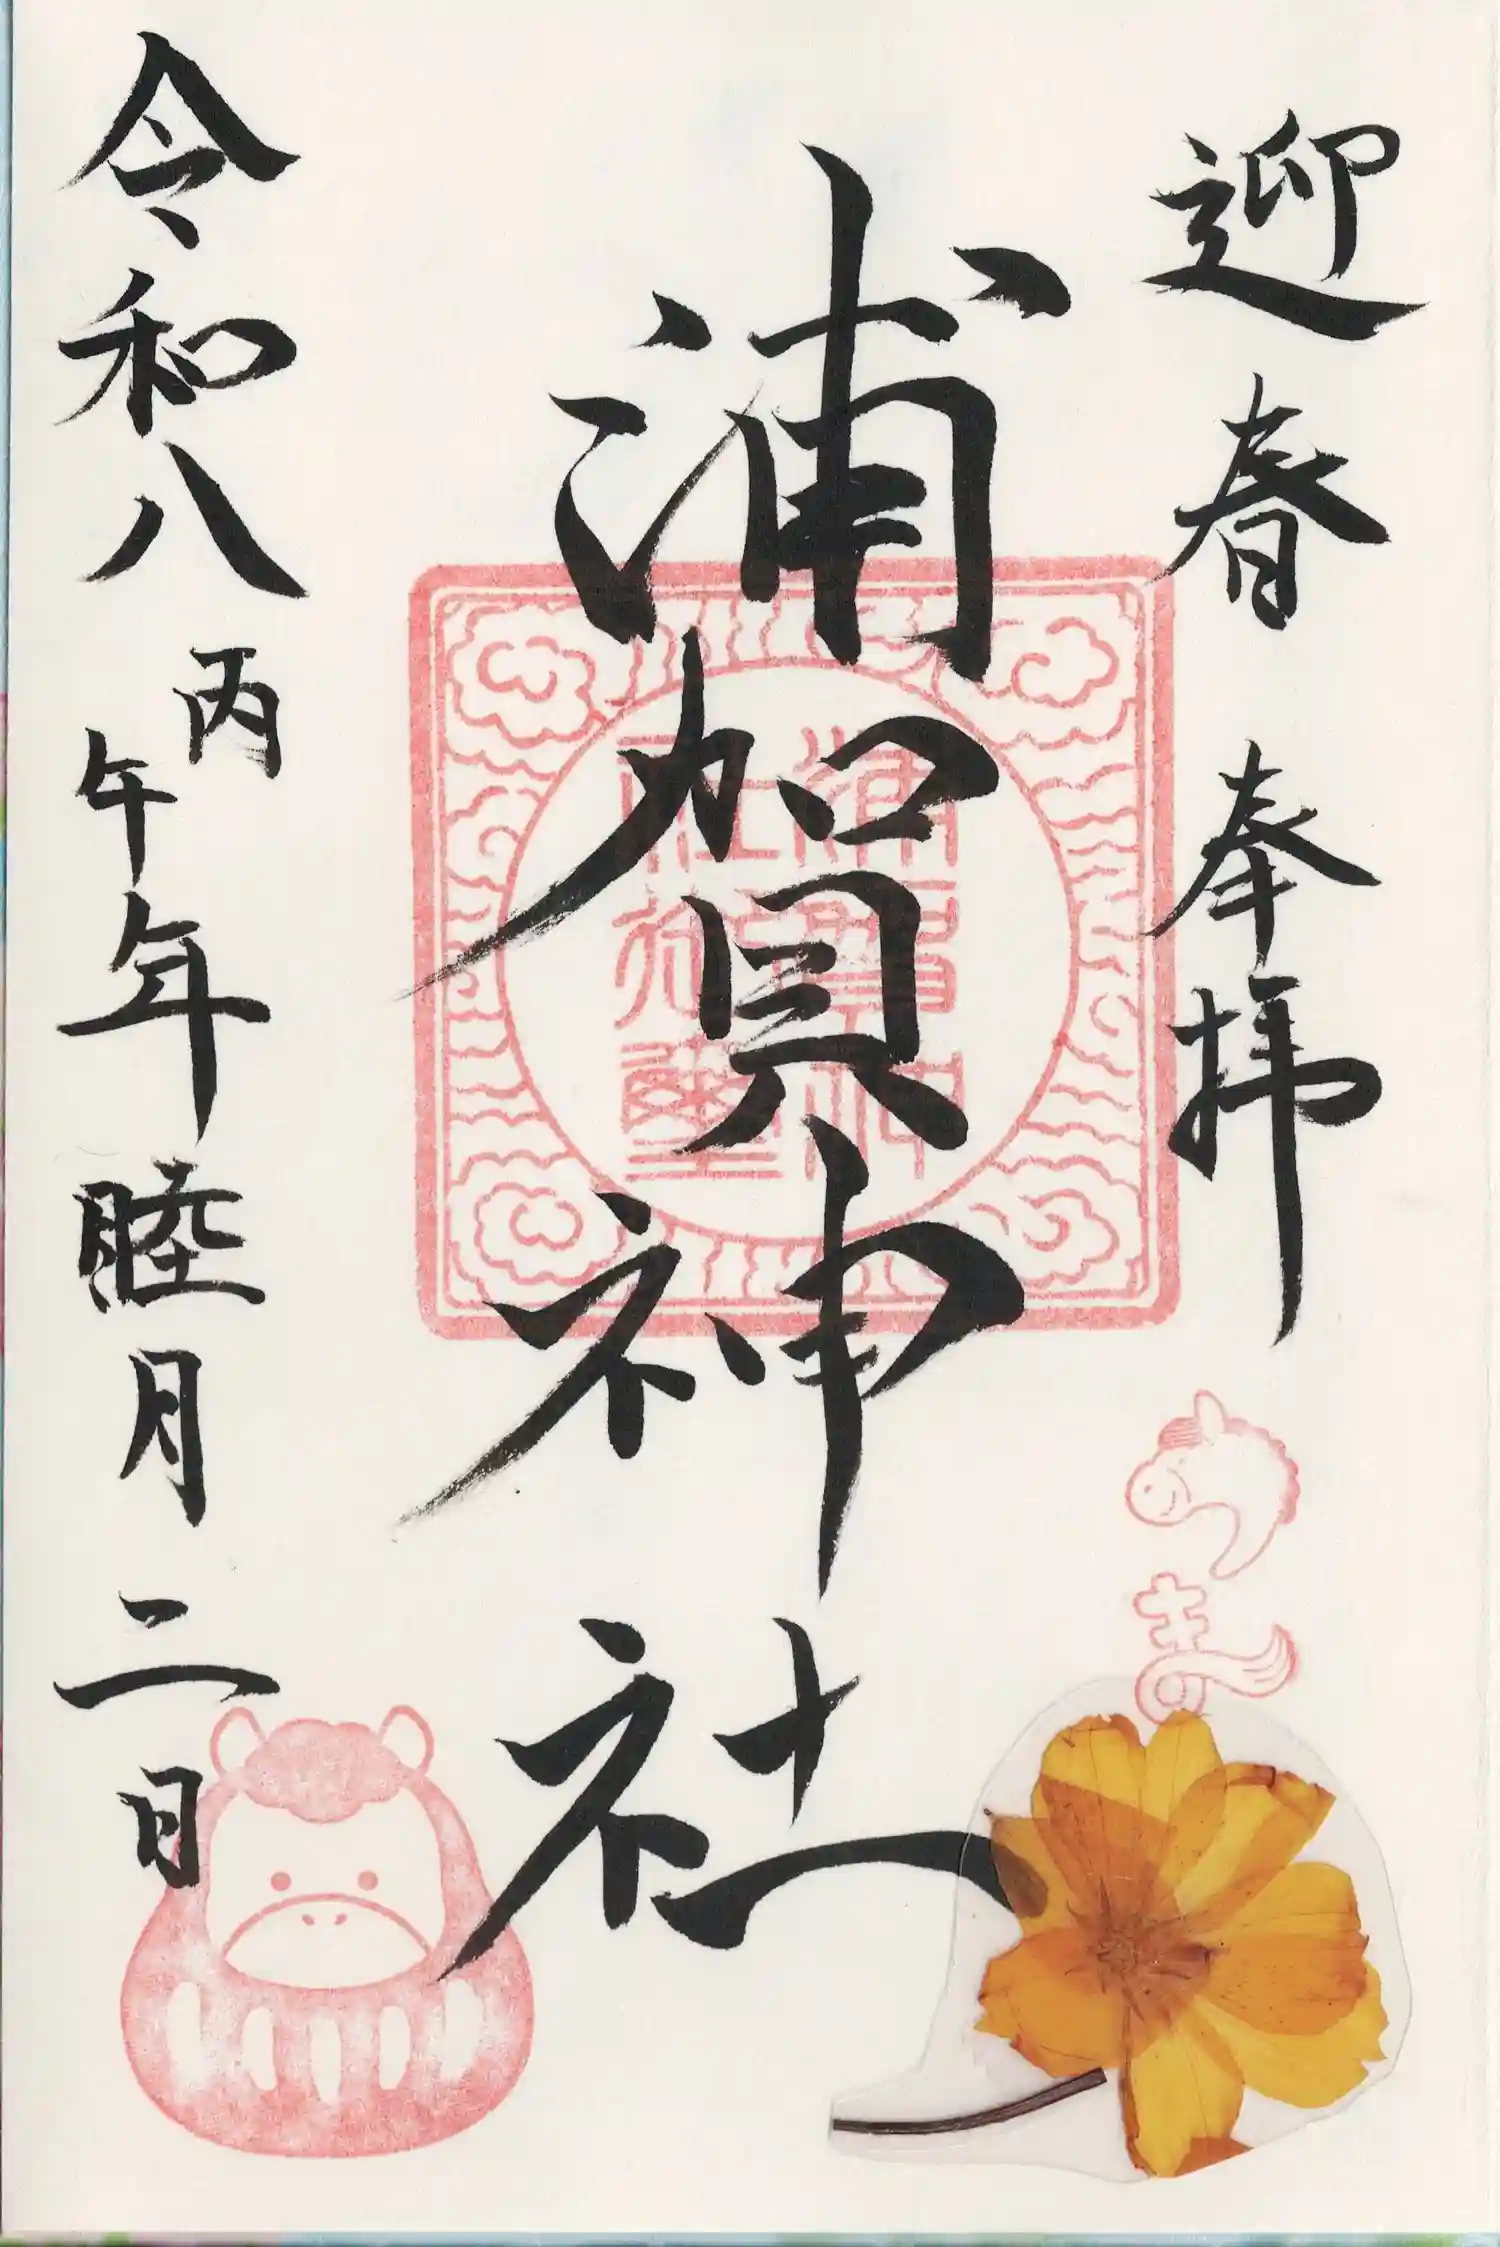 迎春 奉拝
浦賀神社
令和八丙午年 睦月 二日
うま